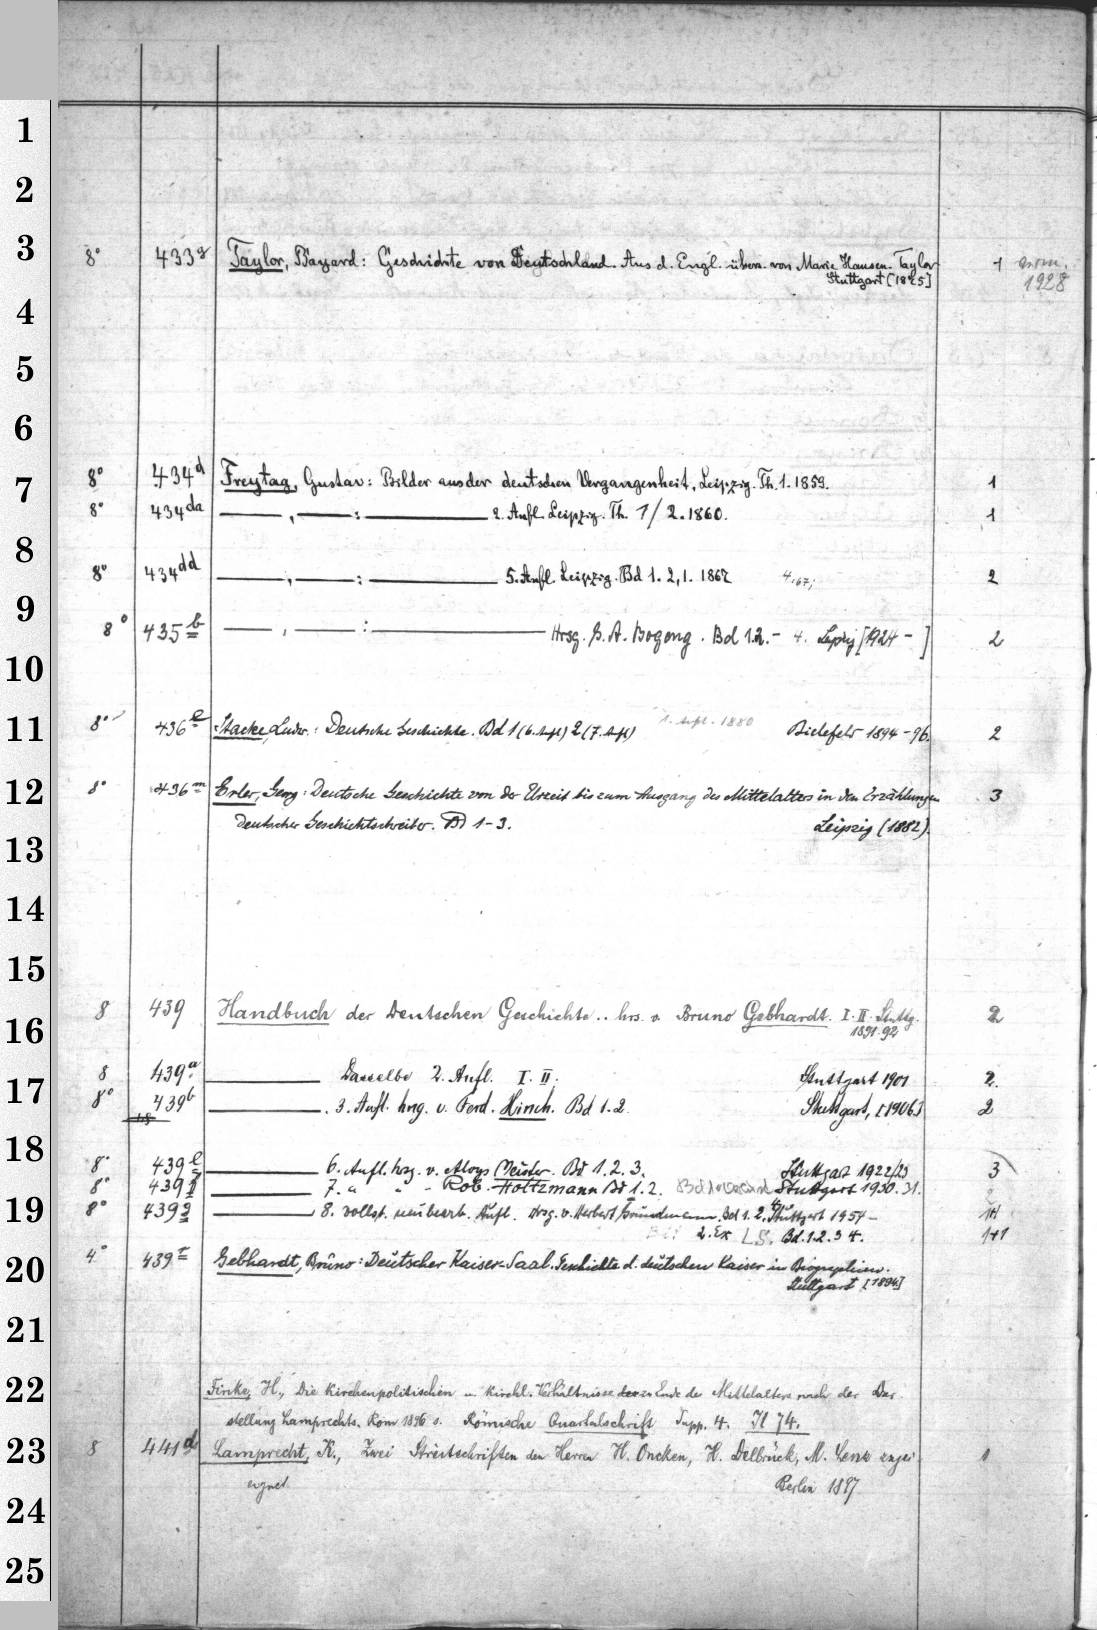 1
2
3
8° 433g Taylor, Bayard: Geschichte von Deutschland. Aus d. Engl. übers. von Marie Hansen-Taylor 1
Stuttgart [18 5] 1928
4
5
6
7
8° 434d Freytag, Gustav: Bilder aus der deutschen Vergangenheit, Leipzig. Th. 1. 1859. 1
8° 434da ——, ——: —— 2. Aufl. Leipzig. Th. 1/2. 1860. 1
8
8° 434dd ——, ——: —— 5. Aufl. Leipzig. Bd 1. 2,1. 1867 4. 67; 2
9
8° 435b ——, ——: —— Hrsg. G. A. Bogeng. Bd 1.2.- 4. Leipzig [1924 - ] 2
10
11
8° 436e Stacke, Ludw.: Deutsche Geschichte. Bd 1 (6. Aufl) 2 (7. Aufl) 1. Aufl. 1880 Bielefeld 1894-96. 2
12
8° 436m Erler, Georg: Deutsche Geschichte von der Urzeit bis zum Ausgang des Mittelalters in den Erzählungen 3
deutscher Geschichtschreiber. Bd 1-3. Leipzig (1882).
13
14
15
16
8 439 Handbuch der Deutschen Geschichte.. hrs. v. Bruno Gebhardt. I. II. Stuttg. 2
1891.92
17
8 439a —— Dasselbe 2. Aufl. I. II. Stuttgart 1901 2.
8° 439b ——. 3. Aufl. hrsg. v. Ferd. Hirsch. Bd 1.2 Stuttgart, [1906.] 2
18
8° 439 —— 6. Aufl. hrsg. v. Aloys Meister. Bd 1. 2. 3. Stuttgart 1922/23 3
8° 439 —— 7. " " - Rob. Holtzmann Bd 1.2. Stuttgart 1930. 31.
19
8° 439 —— 8. vollst. neubearb. Aufl. Hrsg. v. Herbert Grundmann. Bd 1. 2. Stuttgart 1954 -
2. Ex L.S. Bd. 1. 2. 3 4. 1+1
20
4° 439r Gebhardt, Bruno: Deutscher Kaiser-Saal. Geschichte d. deutschen Kaiser in Biographien.
Stuttgart [1894]
21
22
Finke, H., Die kirchenpolitischen u. kirchl. Verhältnisse zu Ende des Mittelalters nach der Dar
stellung Lamprechts. Rom 1896 s. Römische Quartalschrift Supp. 4. Il 74.
23
8 441d Lamprecht, K., Zwei Streitschriften den Herren H. Oncken, H. Delbrück, M. Lenz zugei 1
eignet Berlin 1897
24
25